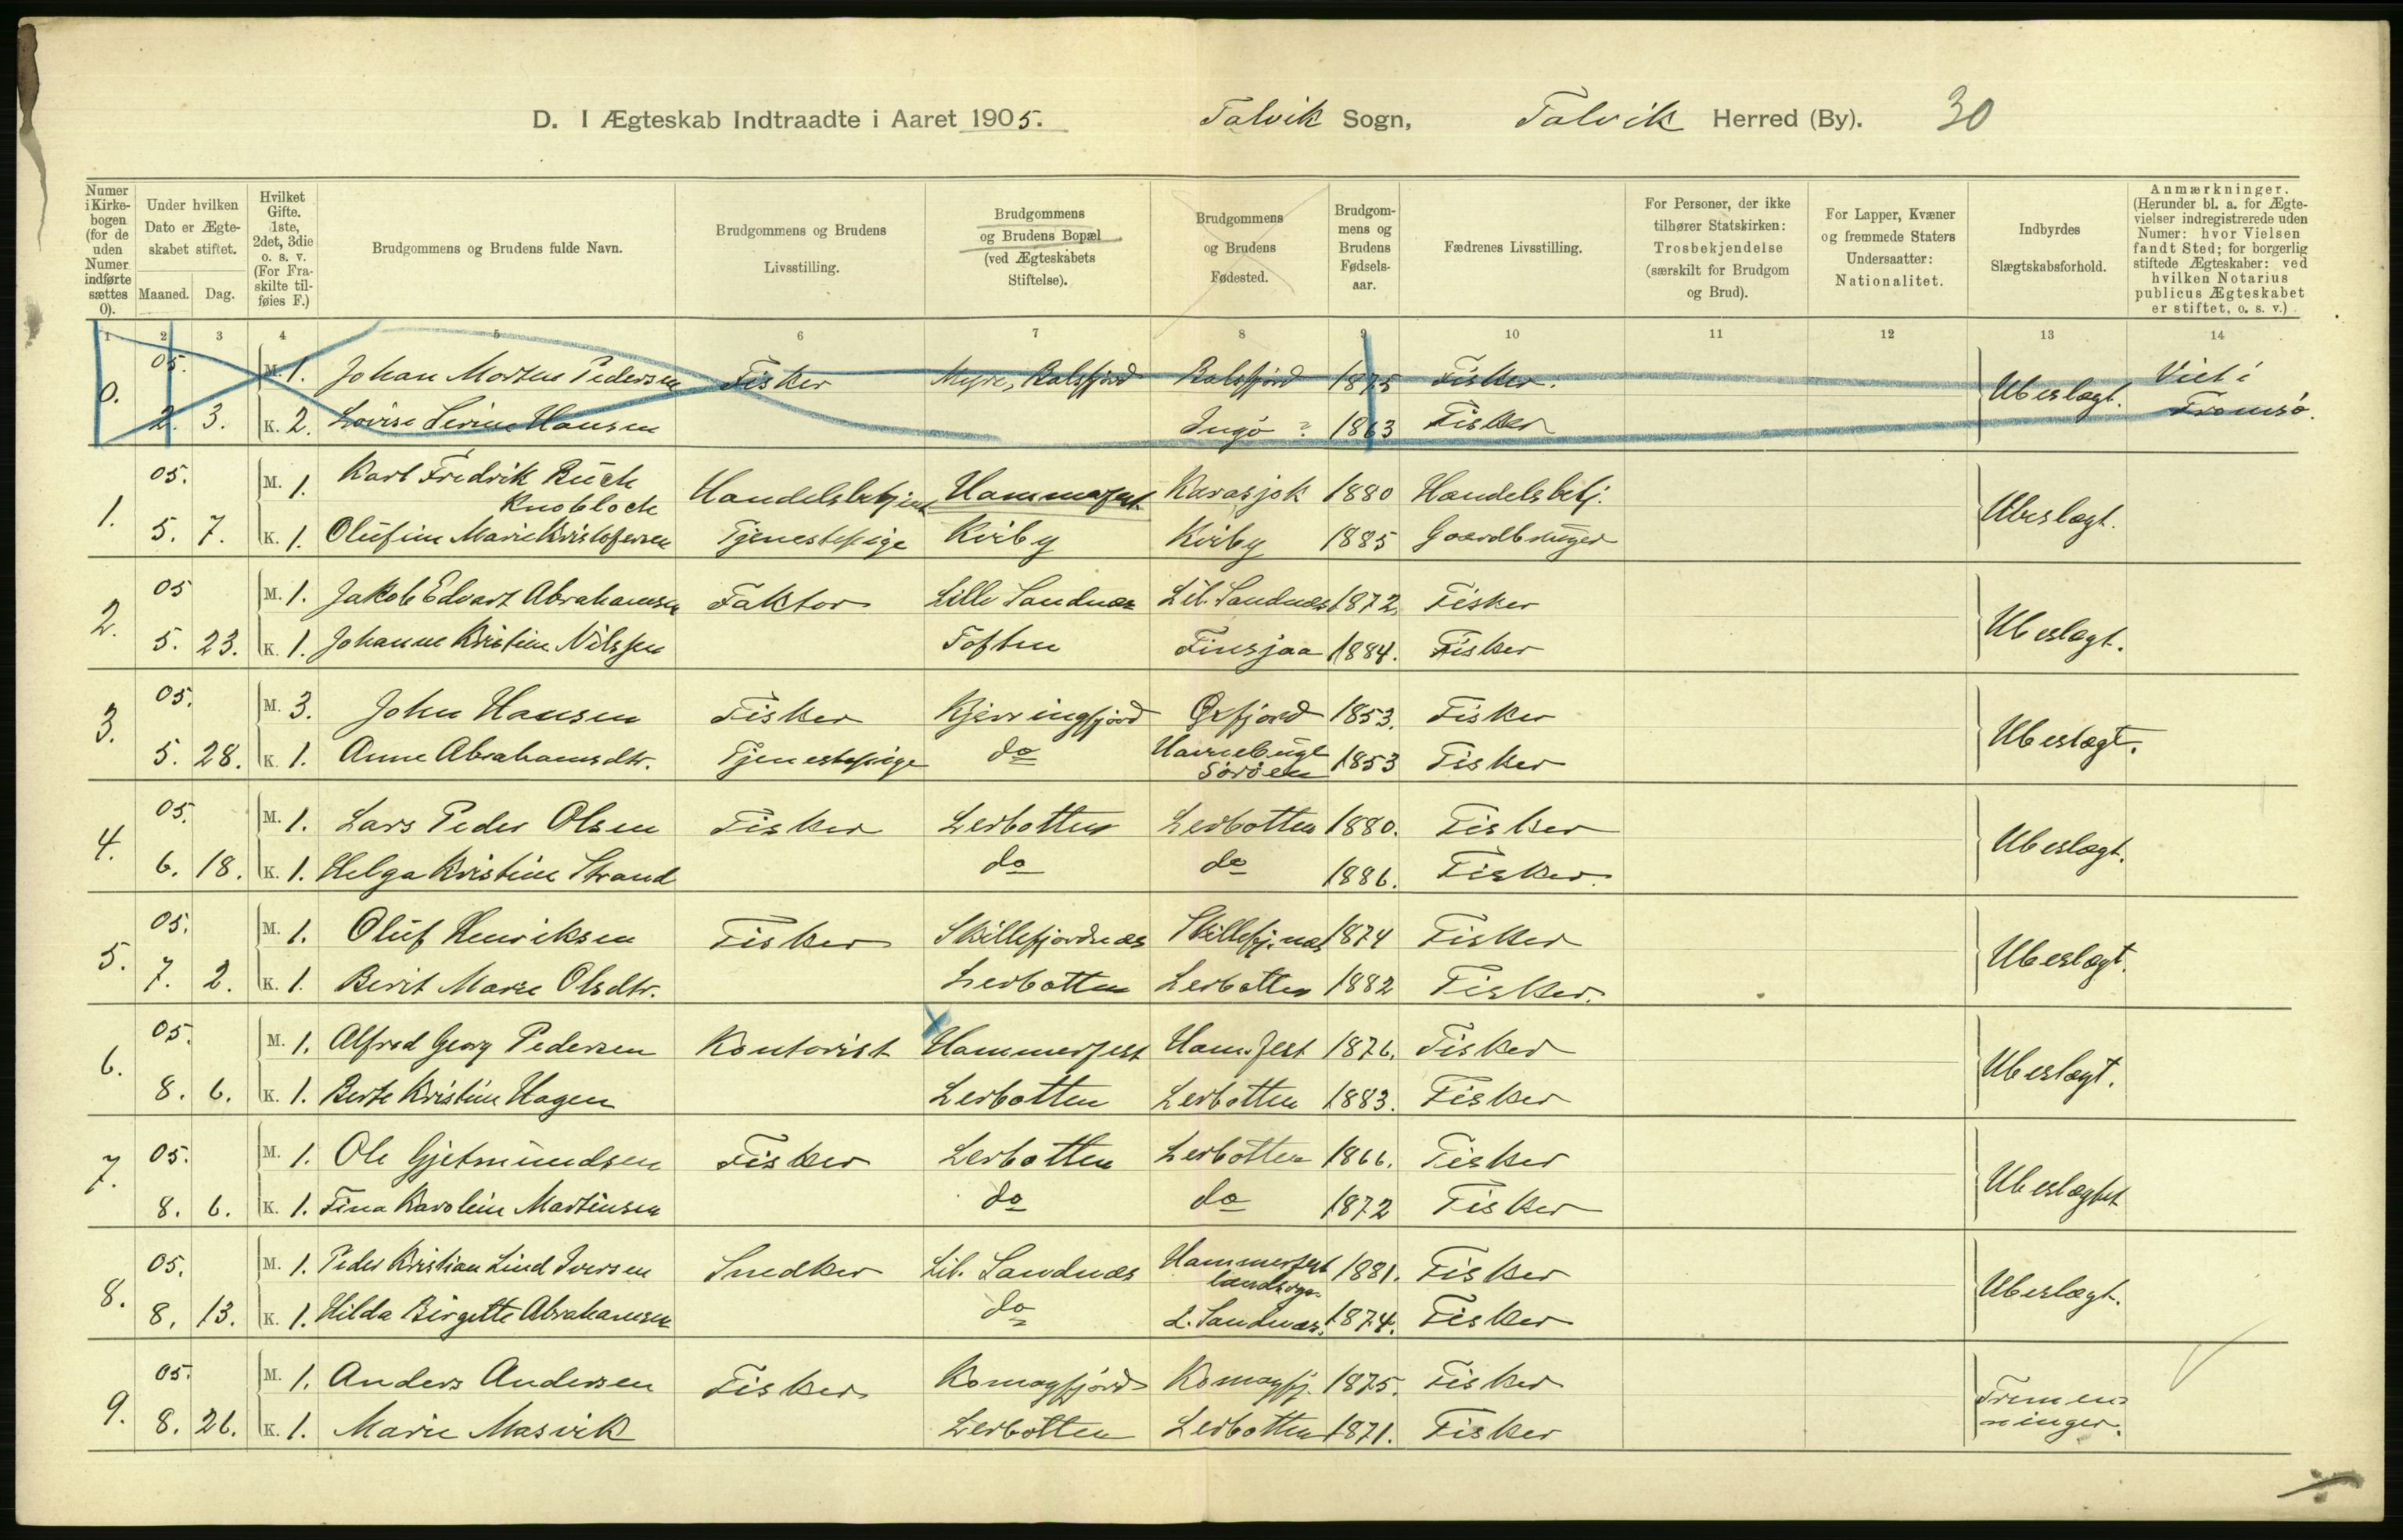 D. I Ægteskab Indtraadte i Aaret 1905. Talvik Sogn, Talvik Herred (By). 30
Numer i Kirkebogen (for de uden Numer indførte sættes 0). Under hvilken Dato er Ægteskabet stiftet. Maaned. Dag. Hvilket Gifte. 1ste, 2det, 3die o. s. v. (For Fraskilte tilføies F.) Brudgommens og Brudens fulde Navn. Brudgommens og Brudens Livsstilling. Brudgommens og Brudens Bopæl (ved Ægteskabets Stiftelse). Brudgommens og Brudens Fødested. Brudgommens og Brudens Fødselsaar. Fædrenes Livsstilling. For Personer, der ikke tilhører Statskirken: Trosbekjendelse (særskilt for Brudgom og Brud). For Lapper, Kvæner og fremmede Staters Undersaatter: Nationalitet. Indbyrdes Slægtskabsforhold. Anmærkninger. (Herunder bl. a. for Ægtevielser indregistrerede uden Numer: hvor Vielsen fandt Sted; for borgerlig stiftede Ægteskaber: ved hvilken Notarius publicus Ægteskabet er stiftet, o. s. v.)
1 2 3 4 5 6 7 8 9 10 11 12 13 14
0. 05. M. 1. Johan Morten Pedersen Fisker Myre, Balsfjord Balsfjord 1875 Fisker. Ubeslægt. Viet i Tromsø.
2. 3. K. 2. Lovise Serine Hansen Ingø ? 1863 Fisker
1. 05. M. 1. Karl Fredrik Buck Knobloch Handelsbetjent Hammerfest Karasjok 1880 Handelsbetj. Ubeslægt.
5. 7. K. 1. Olufine Marie Kristofersen Tjenestepige Kviby Kviby 1885 Gaardbruger
2. 05 M. 1. Jakob Edvart Abrahamsen Faktor Lille Sandnæs Lil. Sandnæs 1872. Fisker Ubeslægt.
5. 23. K. 1. Johanne Kristine Nilssen Toften Finsjaa 1884. Fisker
3. 05. M. 3. John Hansen Fisker Kjerringfjord Øxfjord 1853. Fisker Ubeslægt.
5. 28. K. 1. Anne Abrahamsdtr. Tjenestepige do Sørøen 1853 Fisker
4. 05. M. 1. Lars Peder Olsen Fisker Lerbotten Lerbotten 1880. Fisker Ubeslægt.
6. 18. K. 1. Helga Kristine Strand do do 1886. Fisker.
5. 05. M. 1. Oluf Henriksen Fisker Skillefjordnæs Skillefj.næs 1874 Fisker Ubeslægt.
7. 2. K. 1. Berit Marie Olsdtr. Lerbotten Lerbotten 1882 Fisker.
6. 05. M. 1. Alfred Georg Pedersen Kontorist Hammerfest Ham.fest 1876. Fisker Ubeslægt.
8. 6. K. 1. Berte Kristine Hagen Lerbotten Lerbotten 1883. Fisker
7. 05. M. 1. Ole Gjetmundsen Fisker Lerbotten Lerbotten 1866. Fisker Ubeslægtet
8. 6. K. 1. Fina Karoline Martinsen do do 1872 Fisker
8. 05. M. 1. Peder Kristian Lind Iversen Snedker Lil. Sandnæs Hammerfest landsogn. 1881. Fisker Ubeslægt.
8. 13. K. 1. Hilda Birgitte Abrahamsen do L. Sandnæs. 1874. Fisker
9. 05. M. 1. Anders Andersen Fisker Komagfjord Komagfj. 1875. Fisker Tremenninger.
8. 26. K. 1. Marie Masvik Lerbotten Lerbotten 1871. Fisker